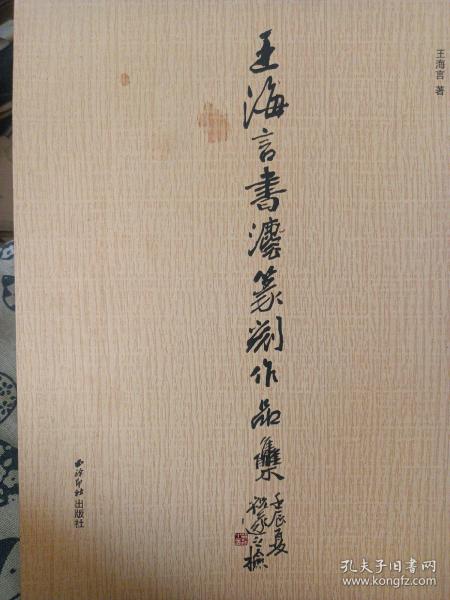 王海言 著
王海言书法篆刻作品集
壬辰夏
祝遂之检
西泠印社出版社
孔夫子旧书网
www.kongfz.com